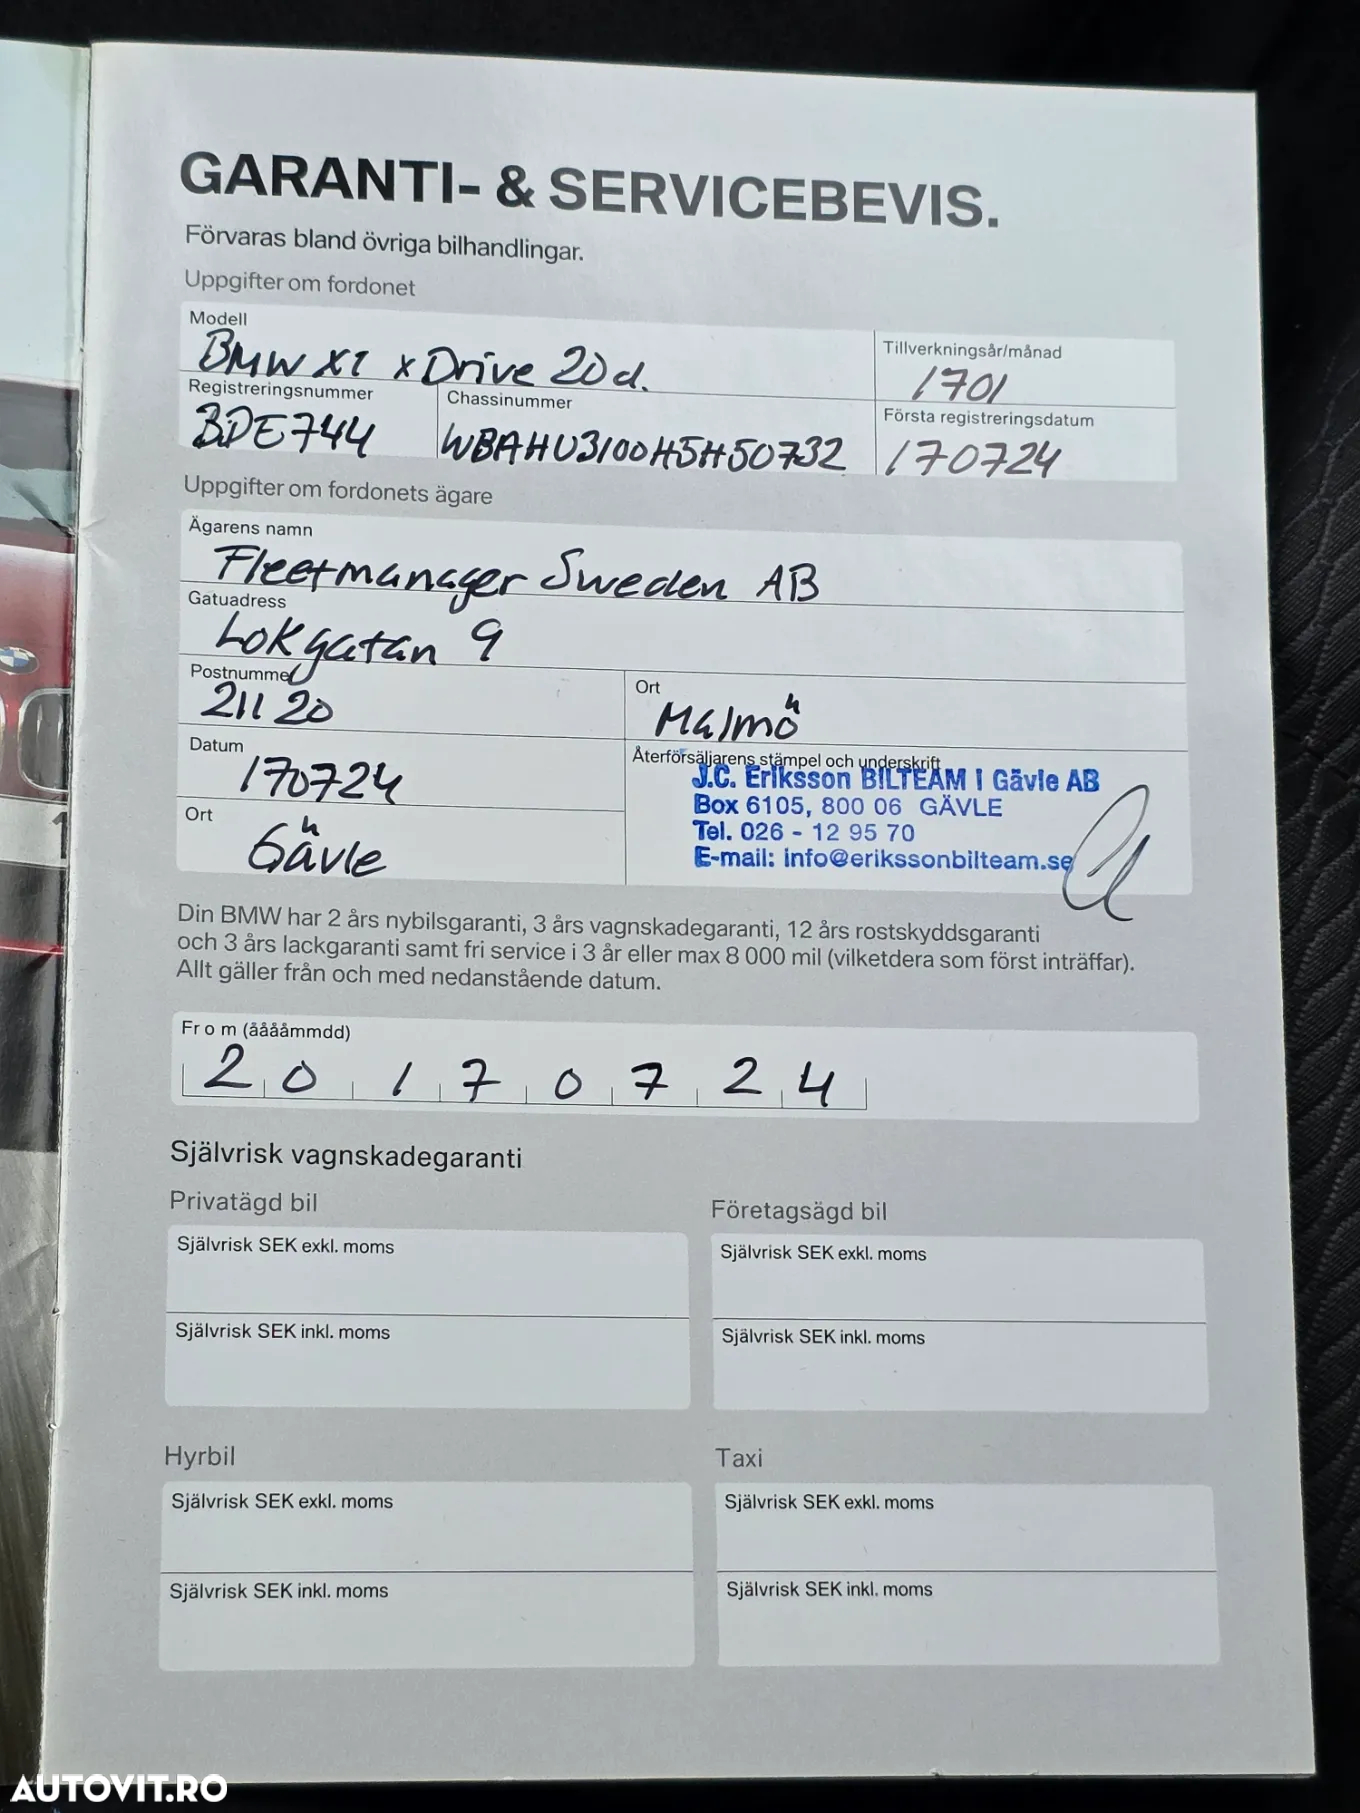 GARANTI- & SERVICEBEVIS.
Förvaras bland övriga bilhandlingar.
Uppgifter om fordonet
Modell
BMW X1 xDrive 20d.
Tillverkningsår/månad
1701
Registreringsnummer
BDE744
Chassinummer
WBAHU3100H5H50732
Första registreringsdatum
170724
Uppgifter om fordonets ägare
Ägarens namn
Fleetmanager Sweden AB
Gatuadress
Lokgatan 9
Postnummer
211 20
Ort
Malmö
Datum
170724
Återförsäljarens stämpel och underskrift
J.C. Eriksson BILTEAM i Gävle AB
Box 6105, 800 06 GÄVLE
Tel. 026 - 12 95 70
E-mail: info@erikssonbilteam.se
Ort
Gävle
Din BMW har 2 års nybilsgaranti, 3 års vagnskadegaranti, 12 års rostskyddsgaranti
och 3 års lackgaranti samt fri service i 3 år eller max 8 000 mil (vilketdera som först inträffar).
Allt gäller från och med nedanstående datum.
Fr o m (ååååmmdd)
2 0 1 7 0 7 2 4
Självrisk vagnskadegaranti
Privatägd bil
Självrisk SEK exkl. moms
Självrisk SEK inkl. moms
Företagsägd bil
Självrisk SEK exkl. moms
Självrisk SEK inkl. moms
Hyrbil
Självrisk SEK exkl. moms
Självrisk SEK inkl. moms
Taxi
Självrisk SEK exkl. moms
Självrisk SEK inkl. moms
AUTOVIT.RO